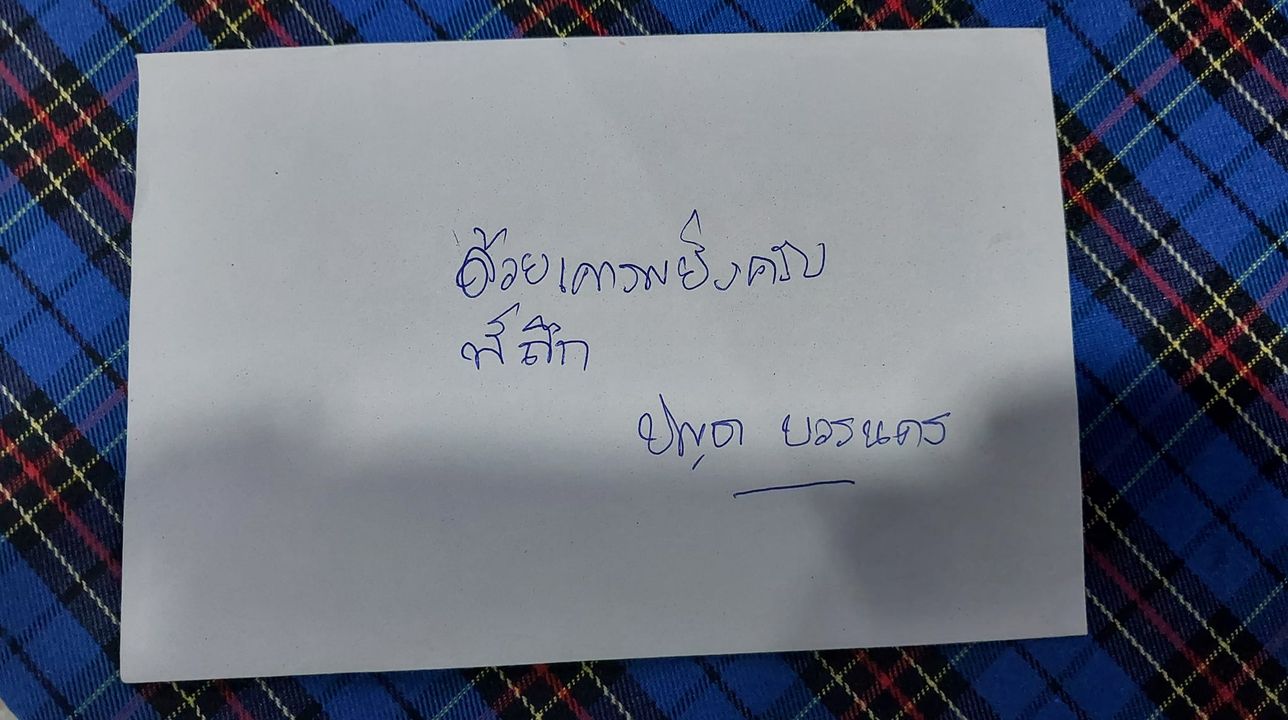 ด้วยเคารพยิ่งครับ
พี่ตึก
บวรนคร